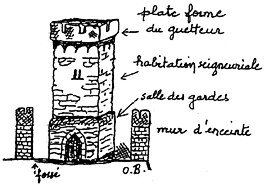 plate forme
du guetteur
habitation seigneuriale
salle des gardes
mur d'enceinte
fossé
O.B.